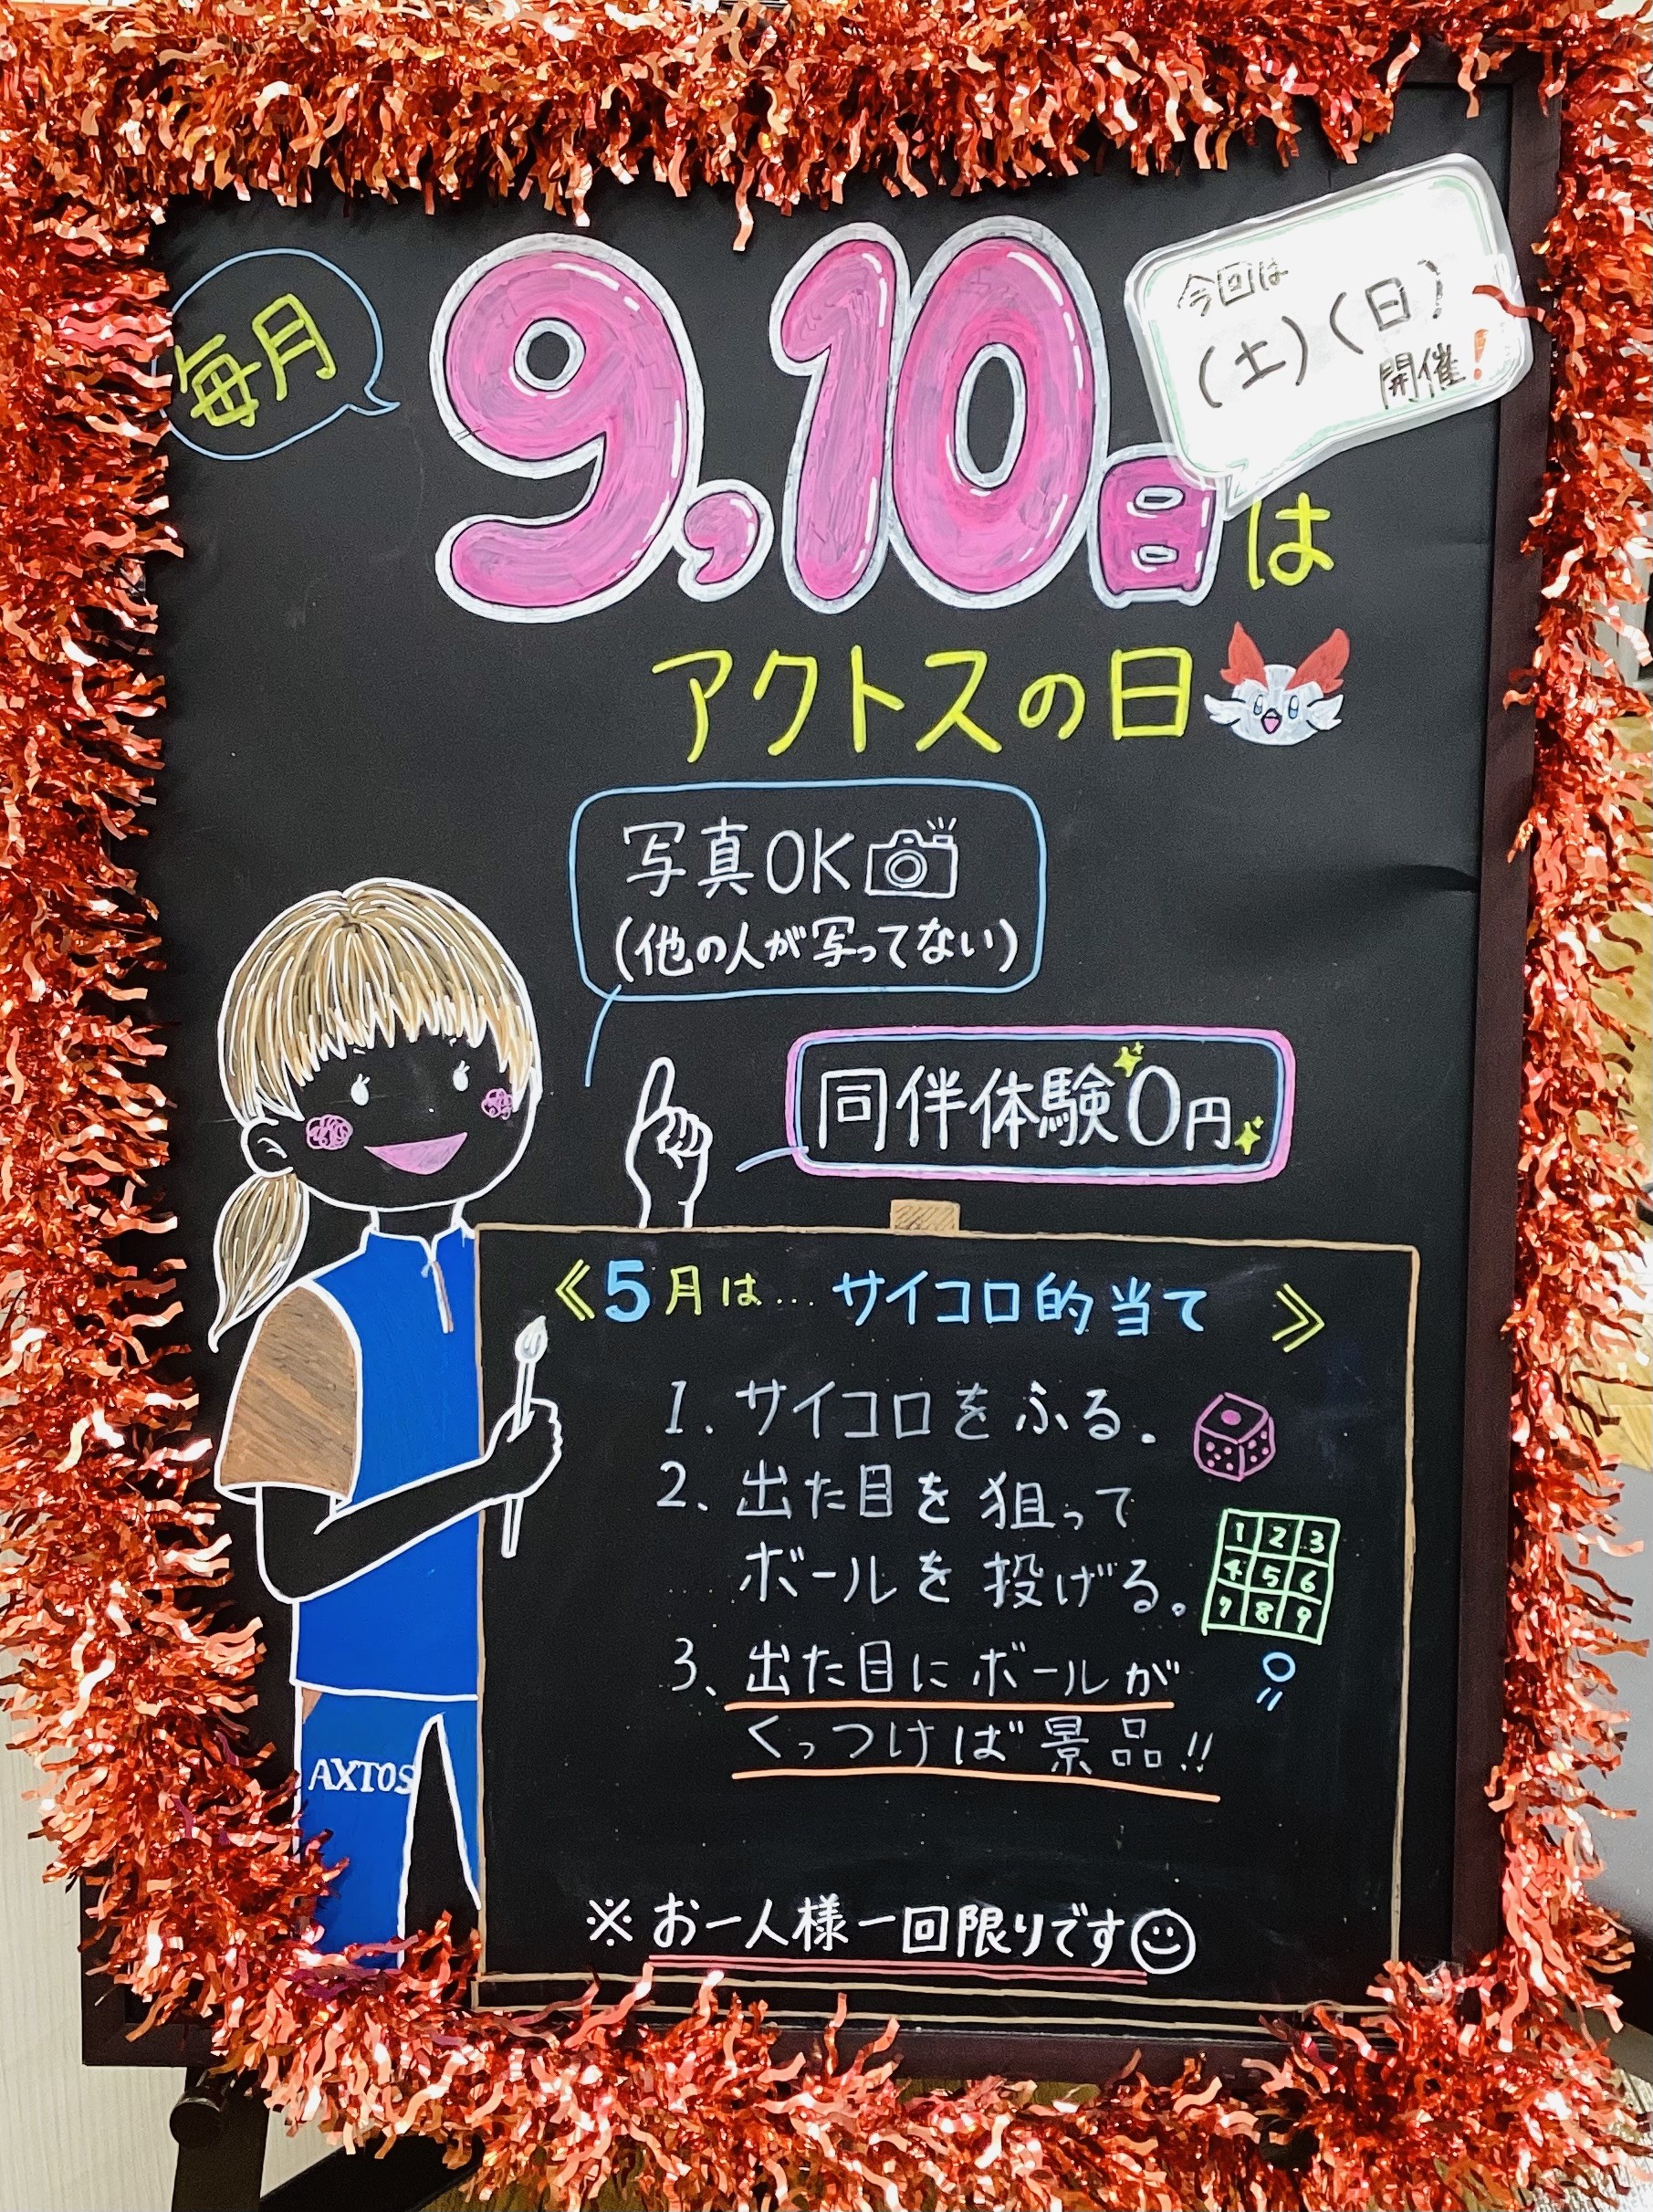 毎月
9,10日は
今回は
(土)(日)
開催!
アクトスの日
写真OK
(他の人が写ってない)
同伴体験0円
《5月は...サイコロ的当て》
1.サイコロをふる.
2、出た目を狙って
ボールを投げる。
1 2 3
4 5 6
7 8 9
3、出た目にボールが
くっつけば景品!!
AXTOS
※お一人様一回限りです